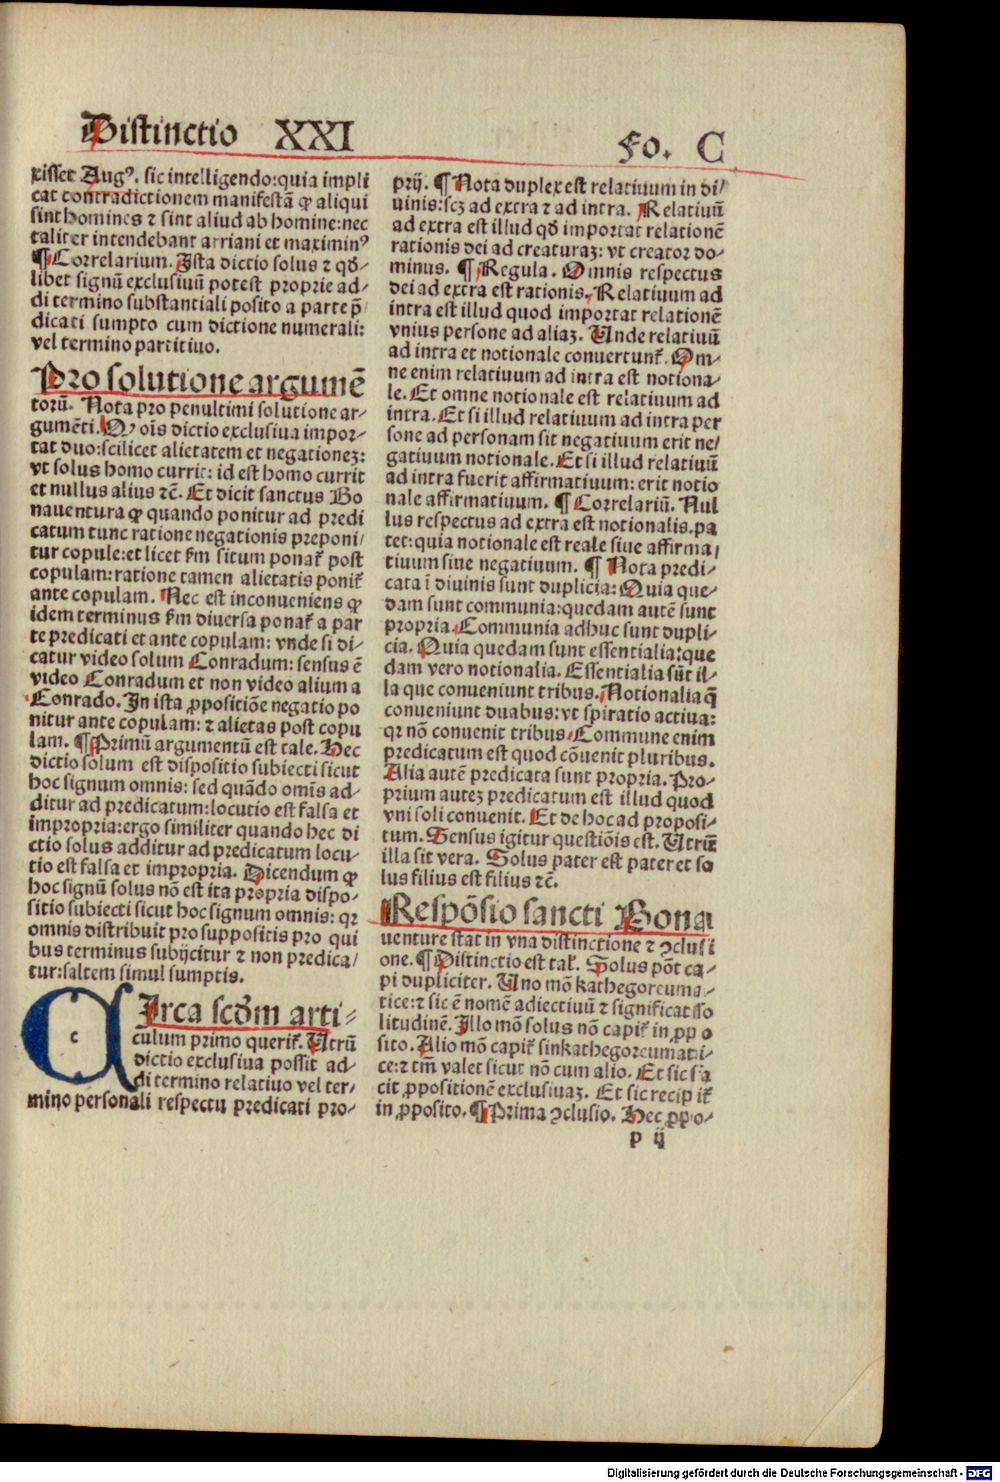 Distinctio XXI
Fo. C
xisset Augꝰ. sic intelligendo: quia impli
cat contradictionem manifestā ꝙ aliqui
sint homines ⁊ sint aliud ab homine: nec
taliter intendebant arriani et maximinꝰ
¶ Correlarium. Ista dictio solus ⁊ qđ-
libet signū exclusiuū potest proprie ad-
di termino substantiali posito a parte p̄
dicati sumpto cum dictione numerali:
vel termino partitiuo.
Pro solutione argumē
torū. Nota pro penultimi solutione ar-
gumēti. Ꝙ oīs dictio exclusiua impor-
tat duo: scilicet alietatem et negationeꝫ:
vt solus homo currit: id est homo currit
et nullus alius ⁊c̄. Et dicit sanctus Bo
nauentura ꝙ quando ponitur ad predi
catum tunc ratione negationis preponi/
tur copule: et licet ẜm situm ponat᷑ post
copulam: ratione tamen alietatis ponit᷑
ante copulam. Nec est inconueniens ꝙ
idem terminus ẜm diuersa ponat᷑ a par
te predicati et ante copulam: vnde si di-
catur video solum Conradum: sensus ē
video Conradum et non video alium a
Conrado. In ista ꝓpositiōe negatio po
nitur ante copulam: ⁊ alietas post copu
lam. ¶ Primū argumentū est tale. Hec
dictio solum est dispositio subiecti sicut
hoc signum omnis: sed quādo omīs ad-
ditur ad predicatum: locutio est falsa et
impropria: ergo similiter quando hec di
ctio solus additur ad predicatum locu-
tio est falsa et impropria. Dicendum ꝙ
hoc signū solus nō est ita propria dispo-
sitio subiecti sicut hoc signum omnis: qꝛ
omnis distribuit pro suppositis pro qui
bus terminus subijcitur ⁊ non predica/
tur: saltem simul sumptis.
CIrca scđm arti-
culum primo querit᷑. Vtrū
dictio exclusiua possit ad-
di termino relatiuo vel ter-
mino personali respectu predicati pro-
prij. ¶ Nota duplex est relatiuum in di/
uinis: scꝫ ad extra ⁊ ad intra. Relatiuū
ad extra est illud qđ importat relationē
rationis dei ad creaturaꝫ: vt creator do-
minus. ¶ Regula. Omnis respectus
dei ad extra est rationis. Relatiuum ad
intra est illud quod importat relationē
vnius persone ad aliaꝫ. Unde relatiuū
ad intra et notionale conuertunt᷑. Om-
ne enim relatiuum ad intra est notiona-
le. Et omne notionale est relatiuum ad
intra. Et si illud relatiuum ad intra per
sone ad personam sit negatiuum erit ne/
gatiuum notionale. Et si illud relatiuū
ad intra fuerit affirmatiuum: erit notio
nale affirmatiuum. ¶ Correlariū. Nul
lus respectus ad extra est notionalis. pa
tet: quia notionale est reale siue affirma/
tiuum siue negatiuum. ¶ Nota predi-
cata ī diuinis sunt duplicia: Quia que-
dam sunt communia: quedam autē sunt
propria. Communia adhuc sunt dupli-
cia. Quia quedam sunt essentialia: que
dam vero notionalia. Essentialia sūt il-
la que conueniunt tribus. Notionalia q̄
conueniunt duabus: vt spiratio actiua:
qꝛ nō conuenit tribus. Commune enim
predicatum est quod cōuenit pluribus.
Alia autē predicata sunt propria. Pro-
prium auteꝫ predicatum est illud quod
vni soli conuenit. Et de hoc ad proposi-
tum. Sensus igitur questiōis est. Vtrū
illa sit vera. Solus pater est pater et so
lus filius est filius ⁊c̄.
Respōsio sancti Bona
uenture stat in vna distinctione ⁊ ꝯclusi
one. ¶ Distinctio est tal᷑. Solus pōt ca-
pi dupliciter. Uno mō kathegoreuma-
tice: ⁊ sic ē nomē adiectiuū ⁊ significat so
litudinē. Illo mō solus nō capit᷑ in ꝓpo
sito. Alio mō capit᷑ sinkathegoreumati-
ce: ⁊ tm̄ valet sicut nō cum alio. Et sic fa
cit ꝓpositionē exclusiuaꝫ. Et sic recipit᷑
in ꝓposito. ¶ Prima ꝯclusio. Hec ꝓpo-
p ij
Digitalisierung gefördert durch die Deutsche Forschungsgemeinschaft - DFG